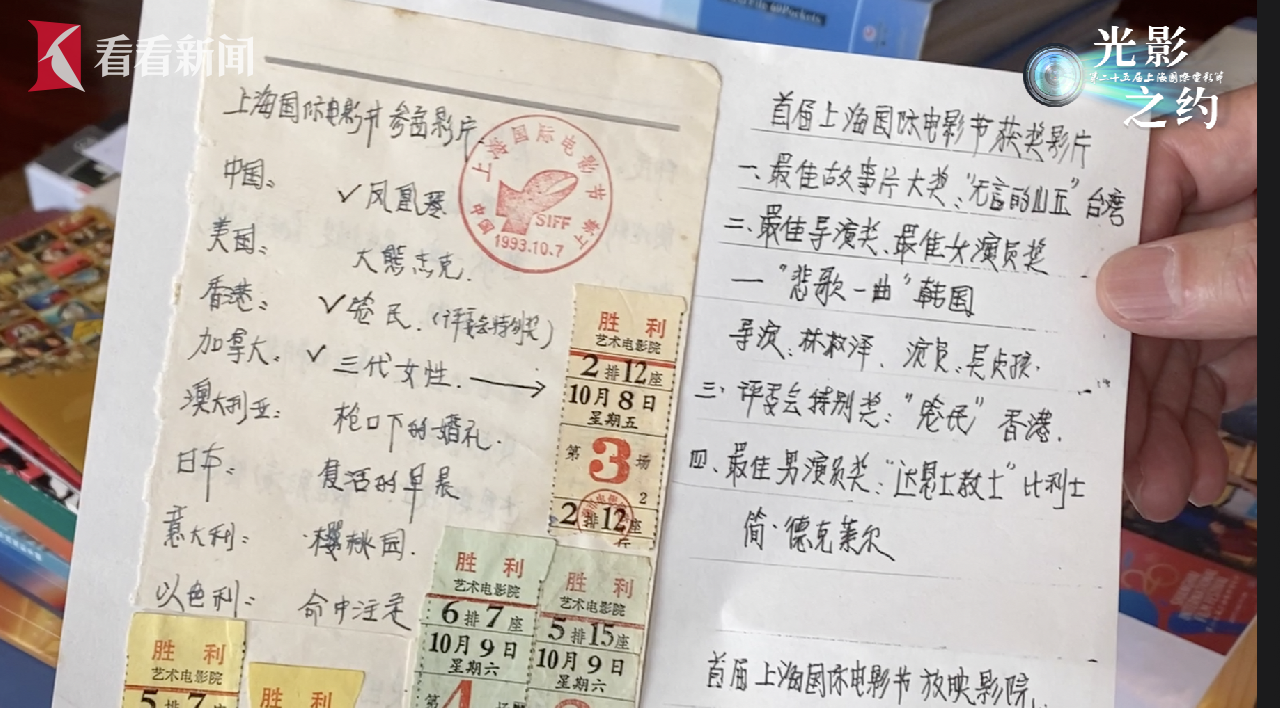 看看新闻
光影
第二十五届上海国际电影节
之约
上海国际电影节参赛影片
中国: ✓凤凰琴
美国: 大熊杰克.
香港: ✓笼民.(评委会特别奖)
加拿大. ✓三代女性. →
澳大利亚: 枪口下的婚礼.
日本: 复活的早晨
意大利: 樱桃园.
以色利: 命中注定
上海国际电影节
SIFF
1993.10.7
中国 上海
胜利
艺术电影院
2排12座
10月8日
星期五
第3场
2
2排12座
胜利
艺术电影院
6排7座
10月9日
星期六
第4场
胜利
艺术电影院
5排15座
10月9日
星期六
胜利
艺术电影院
5排7座
胜利
首届上海国际电影节获奖影片
一、最佳故事片大奖:"无言的山丘"台湾
二、最佳导演奖、最佳女演员奖
—"悲歌一曲"韩国
导演:林权泽、演员:吴贞孩.
三、评委会特别奖:"笼民"香港.
四、最佳男演员奖:"达恩士教士"比利士
简·德克莱尔
首届上海国际电影节放映影院.